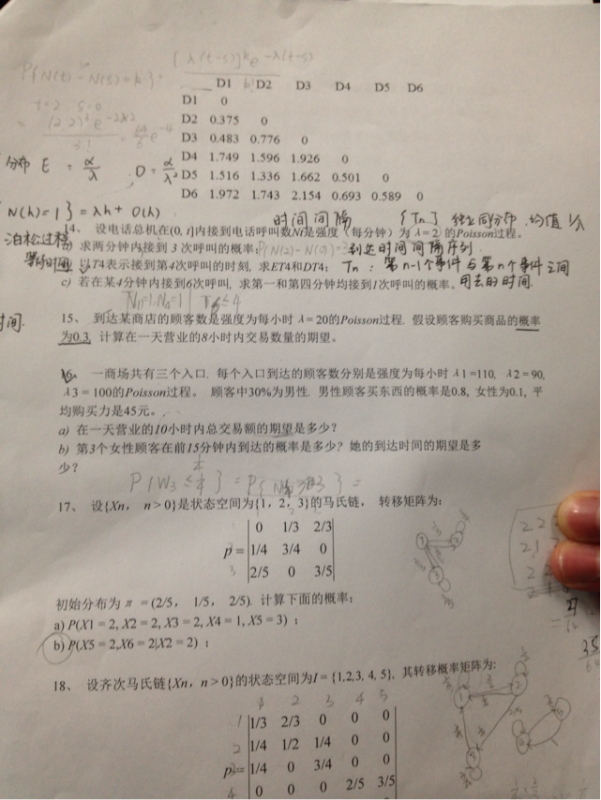 P{N(t)-N(s)=k} = [λ(t-s)]^k e^{-λ(t-s)}
D1 D2 D3 D4 D5 D6
D1 0
D2 0.375 0
D3 0.483 0.776 0
D4 1.749 1.596 1.926 0
D5 1.516 1.336 1.662 0.501 0
D6 1.972 1.743 2.154 0.693 0.589 0
t=2 s=0
分布 E = α/λ D = α/λ²
N(h)=1} = λh + O(h)
时间间隔 {Tn} 独立同分布，均值1/λ
泊松过程
14、 设电话总机在(0, t]内接到电话呼叫数Nt是强度（每分钟）为 λ=2 的Poisson过程.
求两分钟内接到 3 次呼叫的概率;
到达时间间隔序列.
以T4表示接到第4次呼叫的时刻, 求ET4和DT4;
Tn : 第n-1个事件与第n个事件之间
c) 若在某4分钟内接到6次呼叫, 求第一和第四分钟均接到1次呼叫的概率.
间的时间.
时间.
15、 到达某商店的顾客数是强度为每小时 λ = 20的Poisson过程. 假设顾客购买商品的概率
为0.3, 计算在一天营业的8小时内交易数量的期望。
16、 一商场共有三个入口, 每个入口到达的顾客数分别是强度为每小时 λ1 =110, λ2 = 90,
λ3 = 100的Poisson过程。 顾客中30%为男性, 男性顾客买东西的概率是0.8, 女性为0.1, 平
均购买力是45元。
a) 在一天营业的10小时内总交易额的期望是多少?
b) 第3个女性顾客在前15分钟内到达的概率是多少? 她的到达时间的期望是多
少?
P{W3 ≤ 1/4} =
17、 设{Xn, n > 0}是状态空间为{1, 2, 3}的马氏链, 转移矩阵为:
0 1/3 2/3
p = 1/4 3/4 0
2/5 0 3/5
初始分布为 π = (2/5, 1/5, 2/5). 计算下面的概率:
a) P(X1 = 2, X2 = 2, X3 = 2, X4 = 1, X5 = 3) ;
b) P(X5 = 2,X6 = 2|X2 = 2) ;
18、 设齐次马氏链{Xn, n > 0}的状态空间为I = {1,2,3, 4, 5}, 其转移概率矩阵为:
1 2 3 4 5
1 1/3 2/3 0 0 0
2 1/4 1/2 1/4 0 0
p= 1/4 0 3/4 0 0
4 0 0 0 2/5 3/5